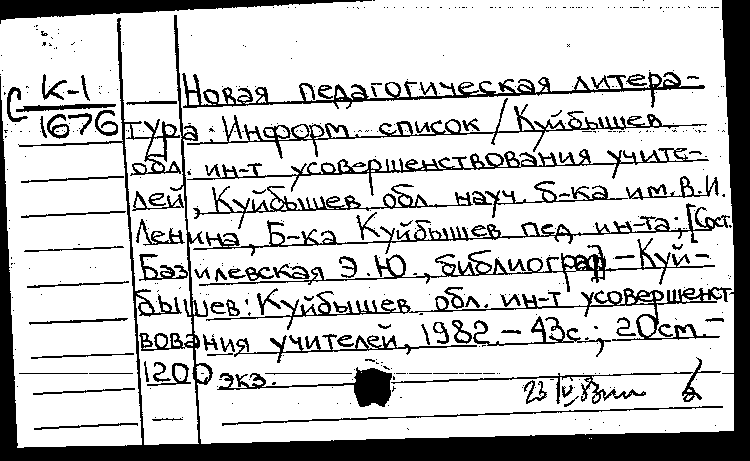 С К-1
1676
Новая педагогическая литера-
тура: Информ. список / Куйбышев.
обл. ин-т усовершенствования учите-
лей, Куйбышев. обл. науч. б-ка им. В.И.
Ленина, Б-ка Куйбышев. пед. ин-та; [Сост.
Базилевская Э.Ю., библиограф]. – Куй-
бышев: Куйбышев. обл. ин-т усовершенст-
вования учителей, 1982. – 43с.; 20см. –
1200 экз.
23/IV 83